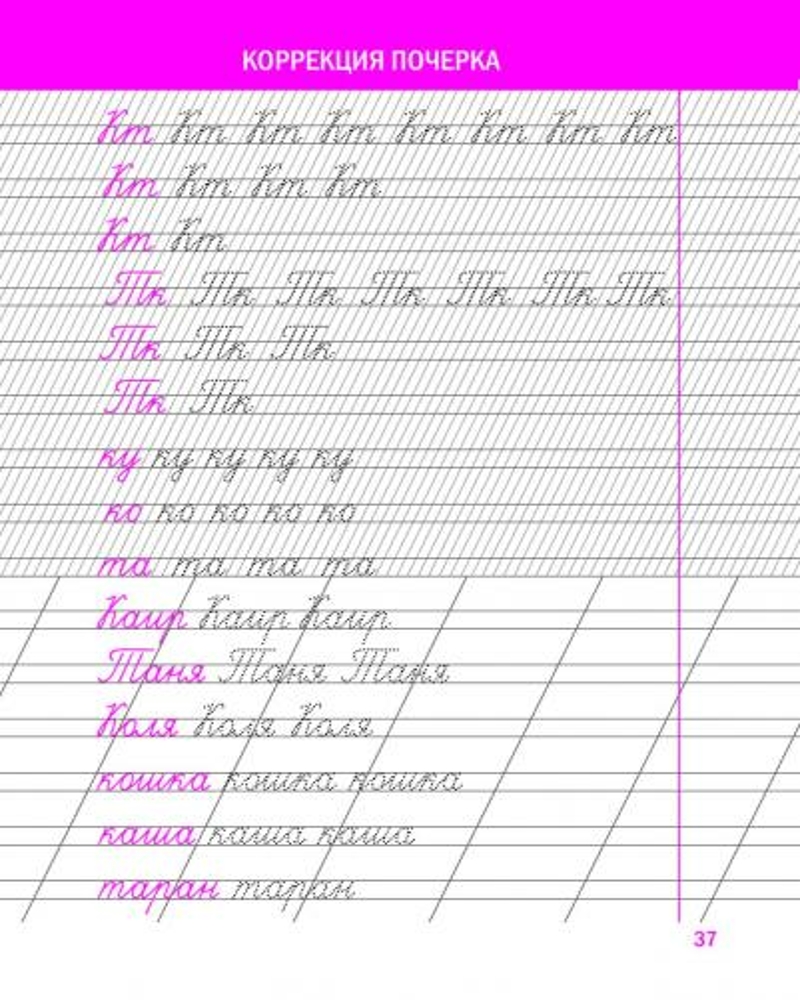 КОРРЕКЦИЯ ПОЧЕРКА
Кт Кт Кт Кт Кт Кт Кт Кт
Кт Кт Кт Кт
Кт Кт
Тк Тк Тк Тк Тк Тк Тк
Тк Тк Тк
Тк Тк
ку ку ку ку ку
ко ко ко ко ко
та та та та
Каир Каир Каир
Таня Таня Таня
Коля Коля Коля
кошка кошка кошка
каша каша каша
таран таран
37